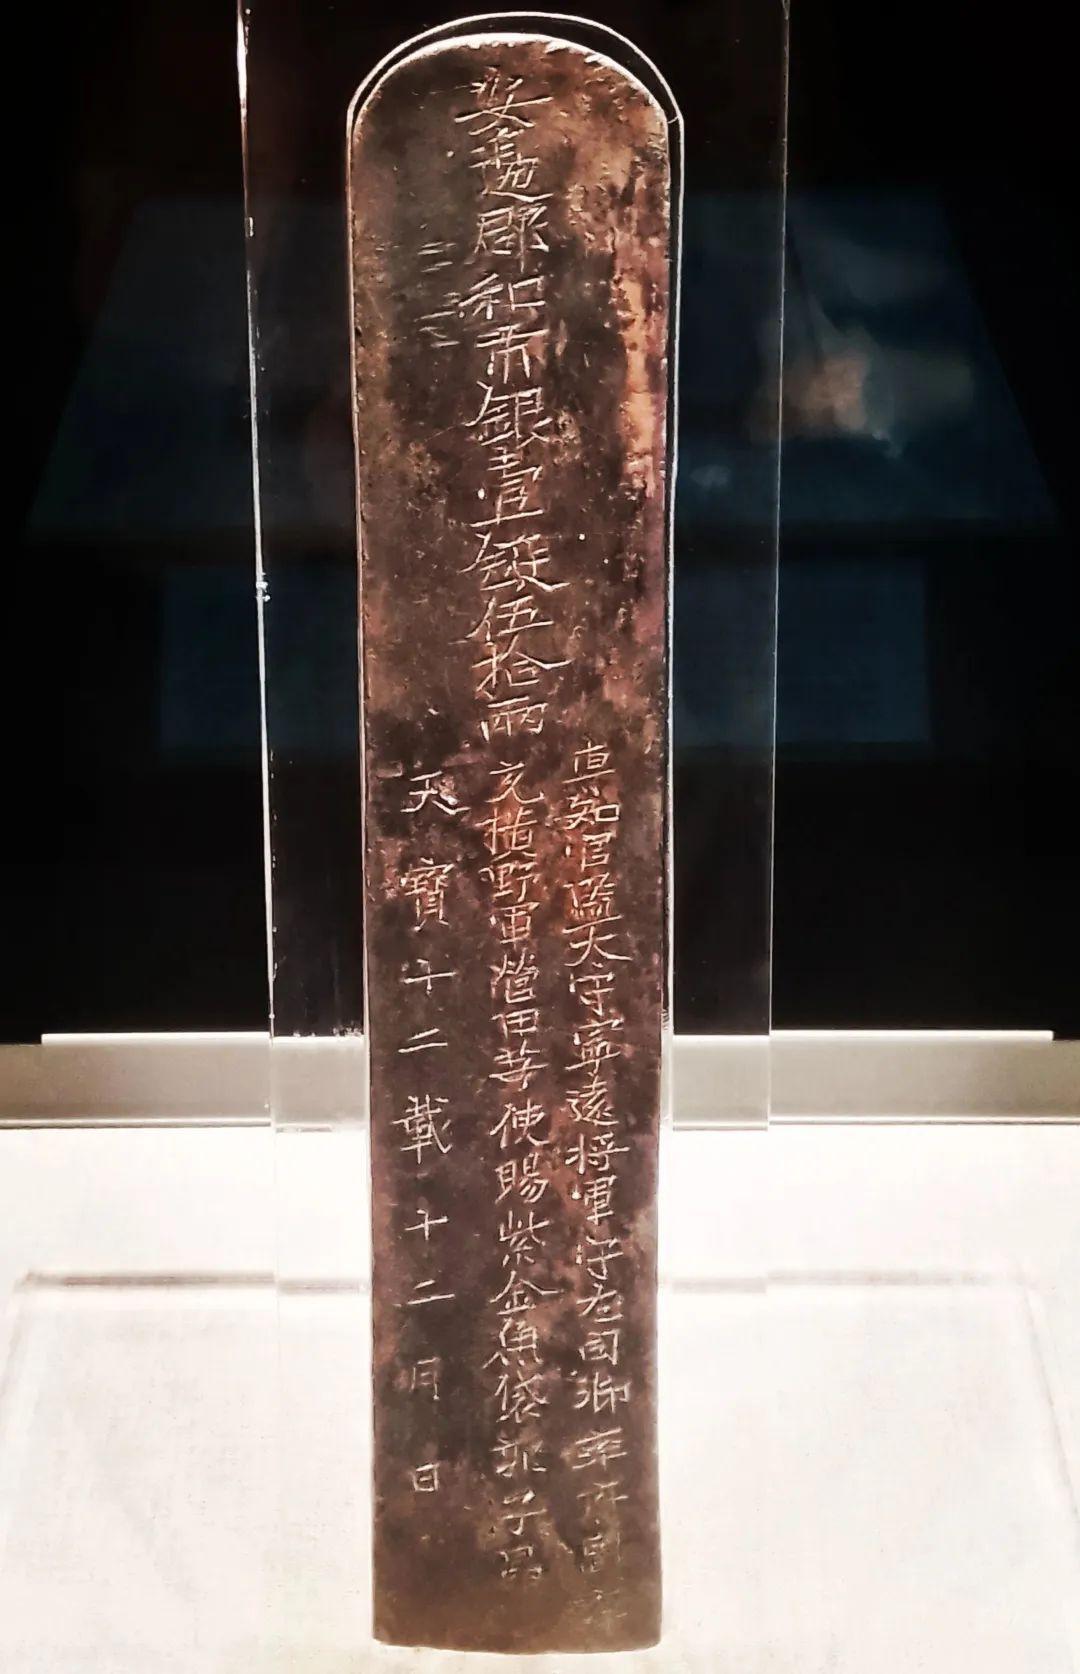 安邊郡和市銀壹鋌伍拾兩
專知官監太守寧遠将軍守左司御率府副率
充橫野軍營田等使賜紫金魚袋郭子昂
天寶十二載十二月 日